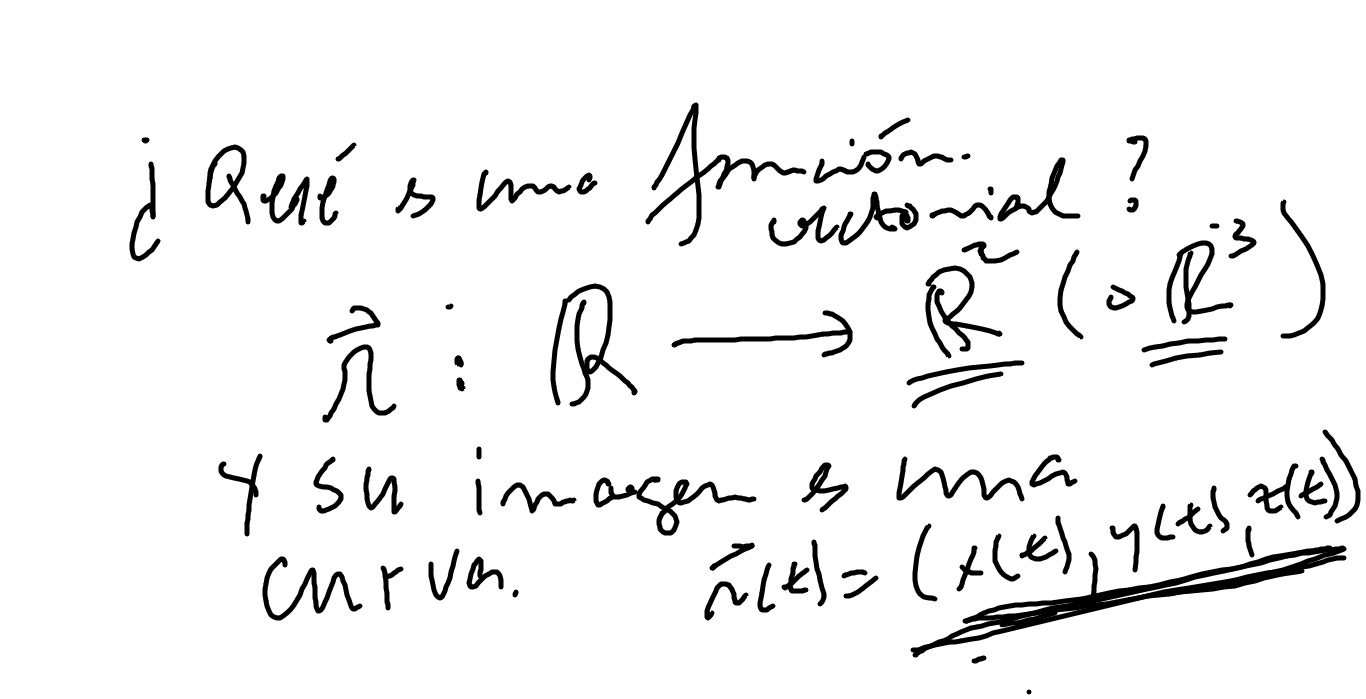 ¿Qué es una función
vectorial?
r⃗ : ℝ ⟶ ℝ² (o ℝ³)
Y su imagen es una
curva. r⃗(t) = (x(t), y(t), z(t))